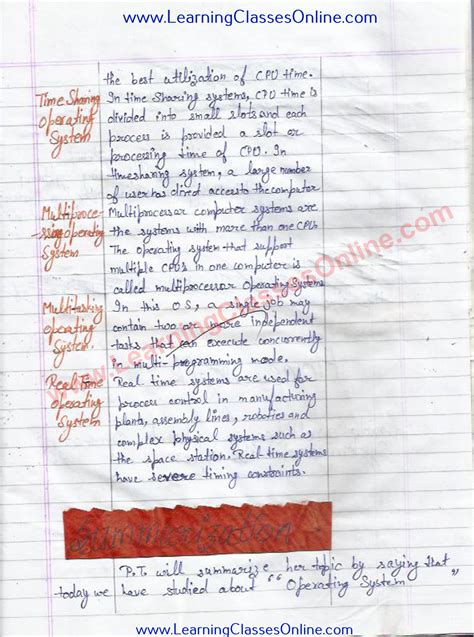 www.LearningClassesOnline.com
the best utilization of CPU time.
Time Sharing Operating System
In time Sharing systems, CPU time is
divided into small slots and each
process is provided a slot or
processing time of CPU. In
timesharing system, a large number
of user has direct access to the computer
Multiproce-
-ssing operating
System
Multiprocessor computer systems are
the systems with more than one CPU.
The operating system that support
multiple CPU's in one computer is
called multiprocessor Operating Systems
Multitasking
operating
System.
In this O.S, a single job may
contain two or more independent
tasks that can execute concurrently
in multi-programming mode.
Real Time
Operating
System
Real time systems are used for
process control in manufacturing
plants, assembly lines, robotics and
complex physical systems such as
the space station. Real time systems
have severe timing constraints.
www.LearningClassesOnline.com
Summarization
P.T. will summarize her topic by saying that
today we have studied about "Operating System"
www.LearningClassesOnline.com